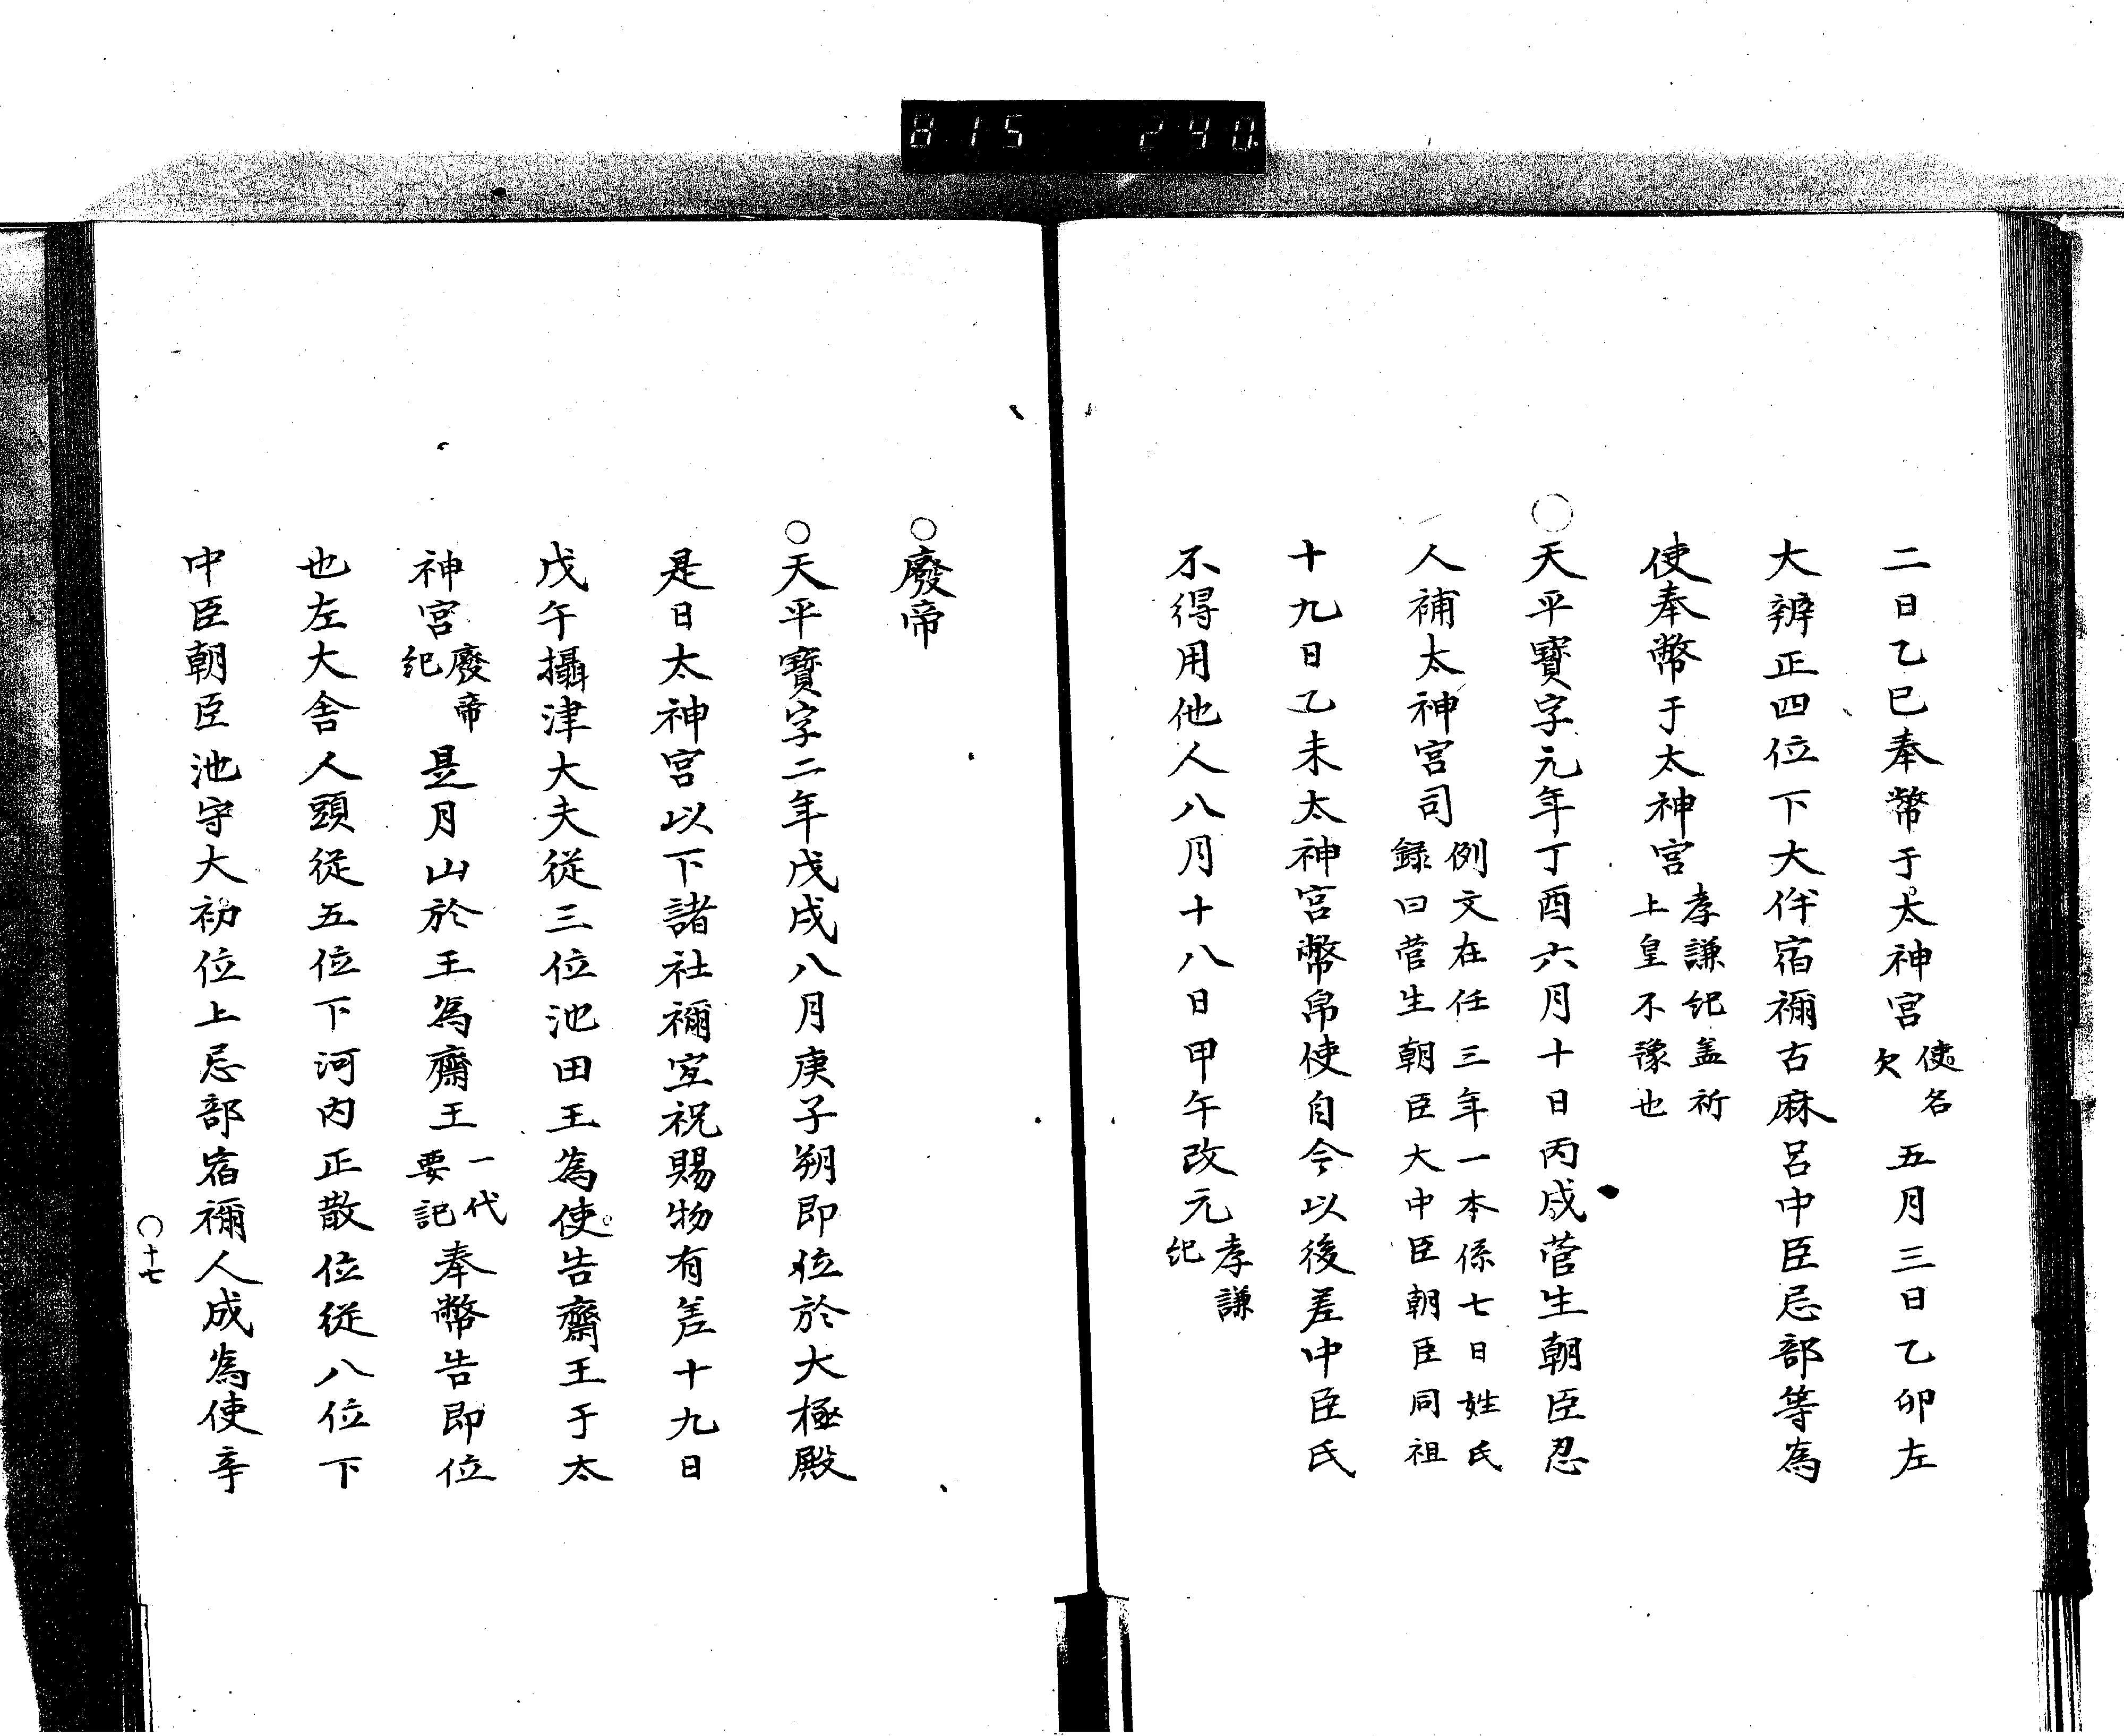 815 240
二日乙巳奉幣于太神宮使名欠五月三日乙卯左
大辨正四位下大伴宿禰古麻呂中臣忌部等為
使奉幣于太神宮孝謙紀盖祈上皇不豫也
○天平寶字元年丁酉六月十日丙戌菅生朝臣忍
人補太神宮司例文在任三年一本係七日姓氏録曰菅生朝臣大中臣朝臣同祖
十九日乙未太神宮幣帛使自今以後差中臣氏
不得用他人八月十八日甲午改元孝謙紀
○廢帝
○天平寶字二年戊戌八月庚子朔即位於大極殿
是日太神宮以下諸社禰宜祝賜物有差十九日
戊午攝津大夫從三位池田王為使告齋王于太
神宮廢帝紀是月山於王為齋王一代要記奉幣告即位
也左大舍人頭從五位下河内正散位從八位下
中臣朝臣池守大初位上忌部宿禰人成為使辛
○十七